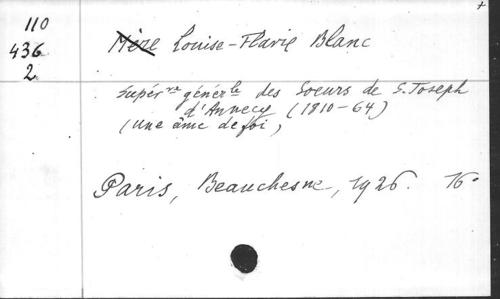 110
436
2
Mère Louise-Flavie Blanc
Supér^re génér^le des Soeurs de S. Joseph
d'Annecy (1810-64)
(une âme de foi,
Paris, Beauchesne, 1926. 16°